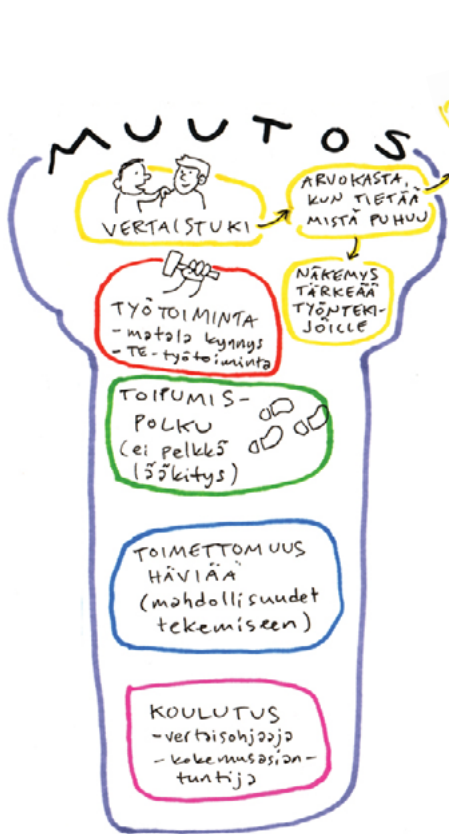 MUUTOS
VERTAISTUKI
ARVOKASTA,
KUN TIETÄÄ
MISTÄ PUHUU
NÄKEMYS
TÄRKEÄÄ
TYÖNTEKI-
JÖILLE
TYÖTOIMINTA
- matala kynnys
- TE-työtoiminta
TOIPUMIS-
POLKU
(ei pelkkä
lääkitys)
TOIMETTOMUUS
HÄVIÄÄ
(mahdollisuudet
tekemiseen)
KOULUTUS
- vertaisohjaaja
- kokemusasian-
tuntija